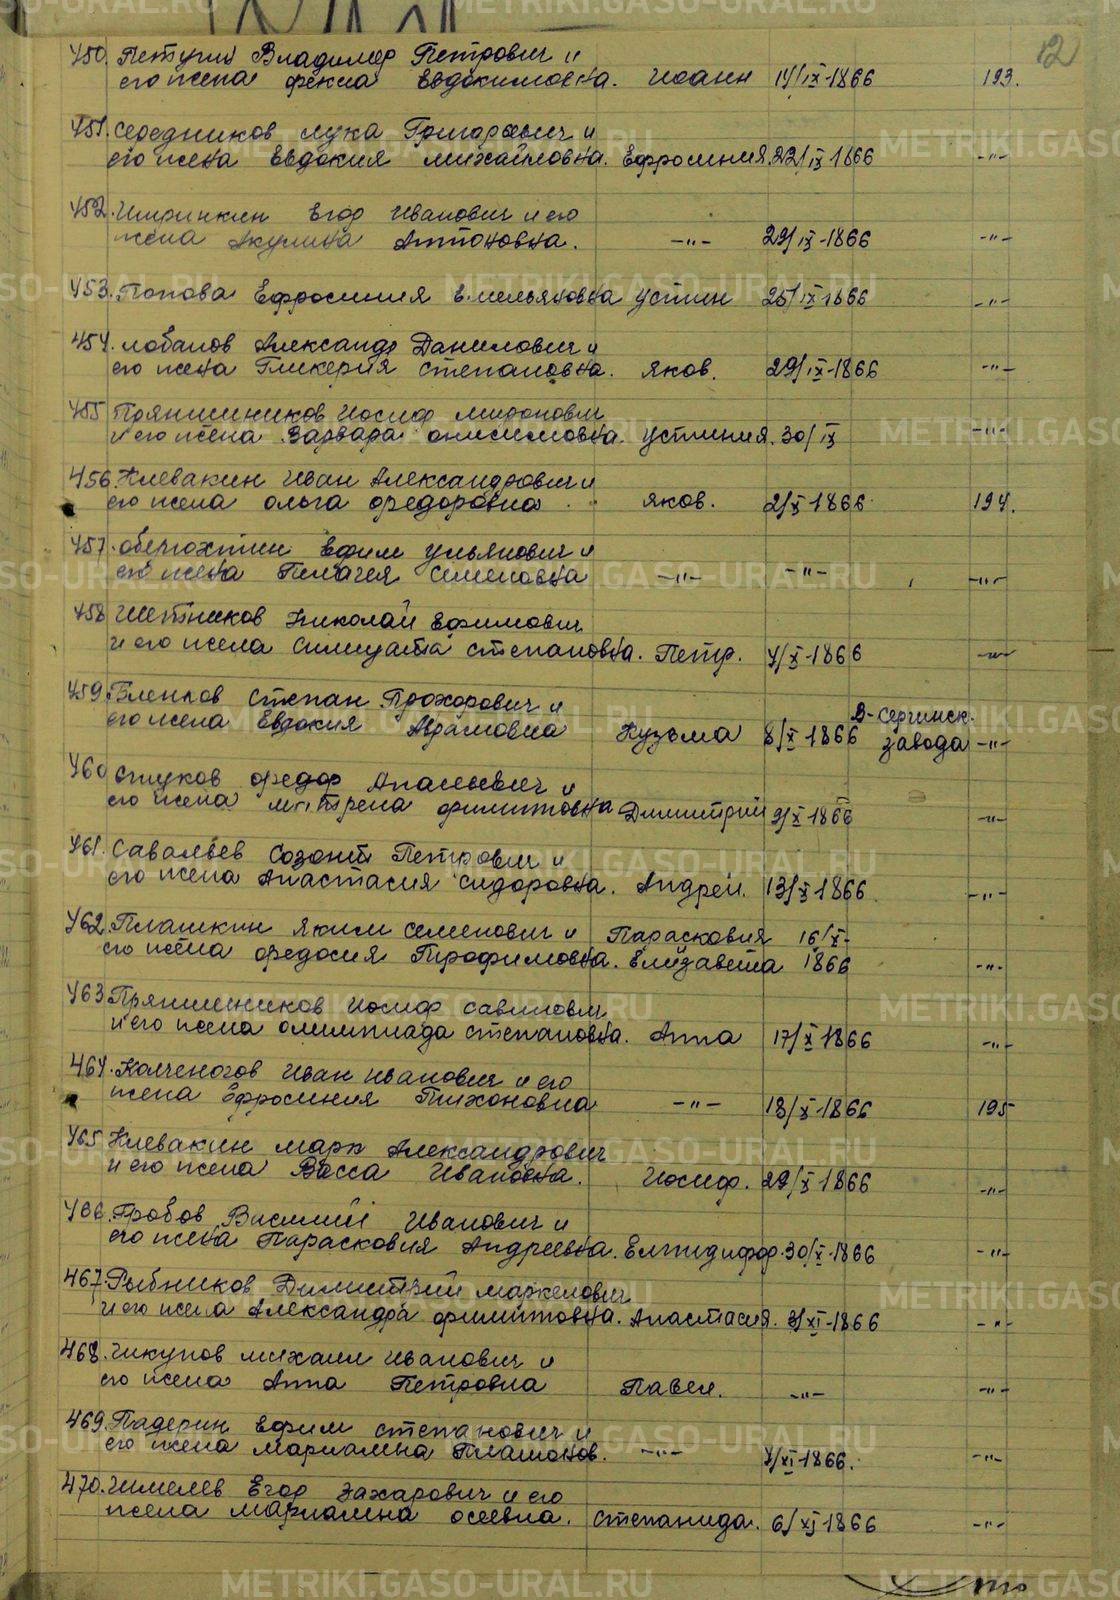 12
450. Петухов Владимер Петрович и
его жена Фекла Евдокимовна. Иоанн 14/IX-1866 193.
451. Середников Лука Григорьевич и
его жена Евдокия Михайловна. Ефросиния. 22/IX-1866 -"-
452. Ширинкин Егор Иванович и его
жена Акулина Антоновна. -"- 29/IX-1866 -"-
453. Попова Ефросиния Емельяновна Устин 25/IX 1866 -"-
454. Лобанов Александр Данилович и
его жена Гликерия Степановна. Яков. 29/IX-1866 -"-
455 Прянишников Иосиф Миронович
и его жена Варвара Онисимовна. Устиния. 30/IX -"-
456. Клевакин Иван Александрович и
его жена Ольга Федоровна. Яков. 2/X-1866 194.
457. Оберюхтин Ефим Ульянович и
его жена Пелагея Семеновна -"- -"- -"-
458 Шетников Николай Ефимович
и его жена Степановна. Петр. 4/X-1866 -"-
459. Степан Прохорович и
его жена Евдокия Абрамовна Кузьма 8/X-1866 В-Сергинск.
завода -"-
460 Стуков Федор и
его жена Филиповна Димитрий 9/X-1866 -"-
461. Савальев Созонт Петрович и
его жена Анастасия Сидоровна. Андрей. 13/X-1866 -"-
462. Плашкин Яким Семенович и Парасковия 16/X-
его жена Федосия Трофимовна. Елизавета 1866 -"-
463 Прянишников Иосиф Савинович
и его жена Олимпиада Степановна. Анна 17/X-1866 -"-
464. Колченогов Иван Иванович и его
жена Ефросиния Тихоновна -"- 18/X-1866 195
465. Клевакин Марк Александрович
и его жена Васса Ивановна. Иосиф. 29/X-1866 -"-
466. Гробов Василий Иванович и
его жена Парасковия Андреевна. Елпидифор. 30/X-1866 -"-
467. Рыбников Димитрий Маркелович
и его жена Александра Филиповна. Анастасия. 3/XI-1866 -"-
468. Чикунов Михаил Иванович и
его жена Анна Петровна Павел. -"- -"-
469. Падерин Ефим Степанович и
его жена Мариамна Платонов. -"- 4/XI-1866. -"-
470. Шмелев Егор Захарович и его
жена Мариамна Осеевна. Степанида. 6/XI 1866 -"-
METRIKI.GASO-URAL.RU